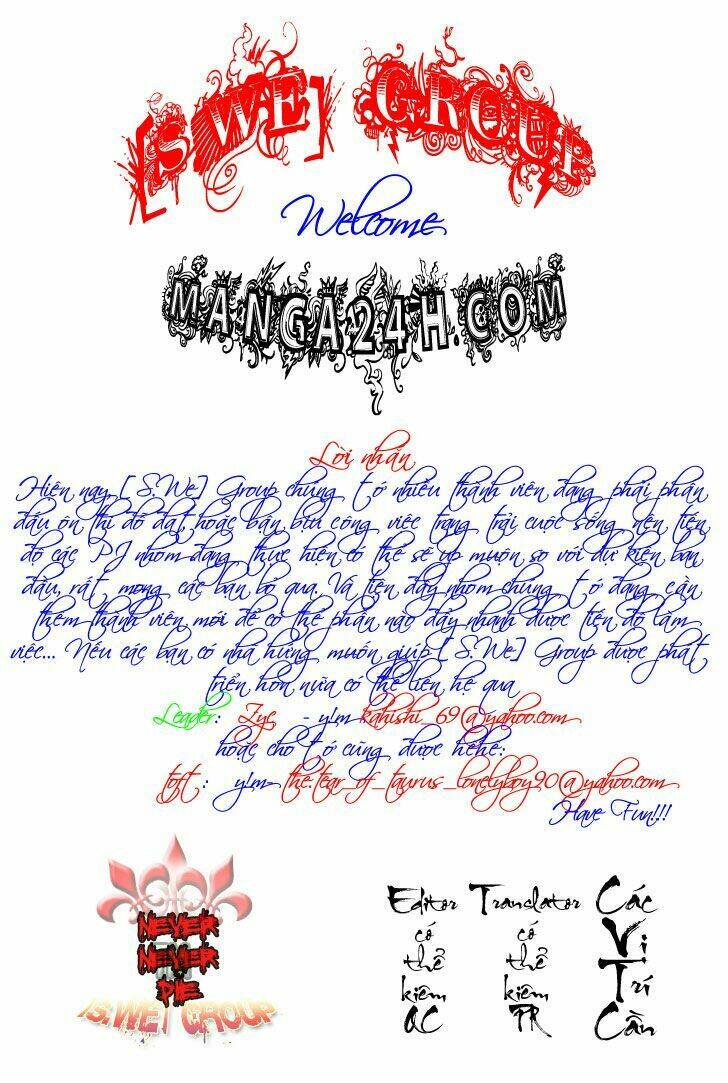 [S.WE] GROUP
Welcome
MANGA24H.COM
Lời nhắn
Hiện nay [S.We] Group chúng tớ nhiều thành viên đang phải phấn
đấu ôn thi đỗ đạt hoặc bận bịu công việc trang trải cuộc sống nên tiến
độ các PJ nhóm đang thực hiện có thể sẽ up muộn so với dự kiến ban
đầu, rất mong các bạn bỏ qua. Và tiện đây nhóm chúng tớ đang cần
thêm thành viên mới để có thể phần nào đẩy nhanh được tiến độ làm
việc... Nếu các bạn có nhã hứng muốn giúp [S.We] Group được phát
triển hơn nữa có thể liên hệ qua
Leader: Zyc - y!m kahishi_69@yahoo.com
hoặc cho tớ cũng được hêhê:
toft : y!m- the.tear_of_taurus_lonelyboy90@yahoo.com
Have Fun!!!
NEVER
NEVER
DIE
[S.WE] GROUP
Các Vị Trí Cần
Translator có thể kiêm PR
Editor có thể kiêm QC